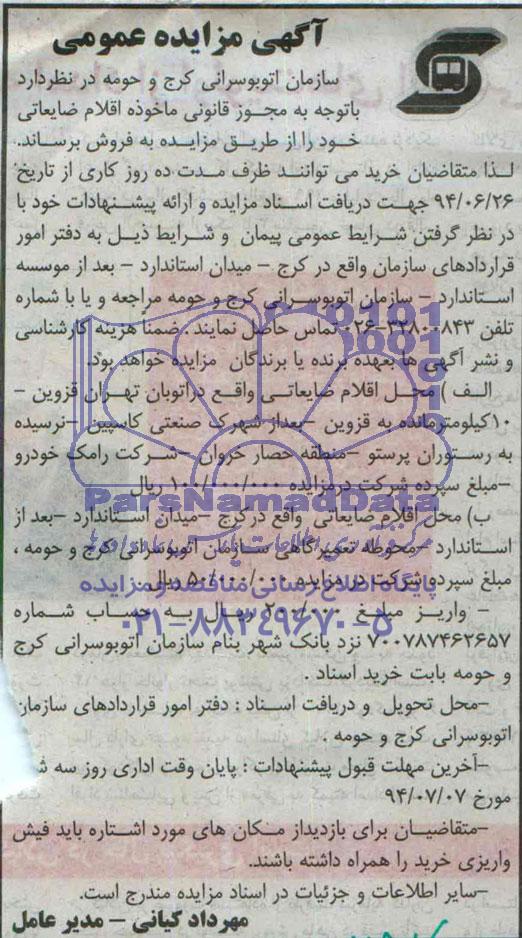 آگهی مزایده عمومی
سازمان اتوبوسرانی کرج و حومه در نظردارد
باتوجه به مجوز قانونی ماخوذه اقلام ضایعاتی
خود را از طریق مزایده به فروش برساند.
لذا متقاضیان خرید می توانند ظرف مدت ده روز کاری از تاریخ
۹۴/۰۶/۲۶ جهت دریافت اسناد مزایده و ارائه پیشنهادات خود با
در نظر گرفتن شرایط عمومی پیمان و شرایط ذیل به دفتر امور
قراردادهای سازمان واقع در کرج – میدان استاندارد – بعد از موسسه
استاندارد – سازمان اتوبوسرانی کرج و حومه مراجعه و یا با شماره
تلفن ۳۲۸۰۰۸۴۳-۰۲۶ تماس حاصل نمایند. ضمناً هزینه کارشناسی
و نشر آگهی ها بعهده برنده یا برندگان مزایده خواهد بود.
الف ) محل اقلام ضایعاتی واقع دراتوبان تهران قزوین –
۱۰کیلومترمانده به قزوین –بعداز شهرک صنعتی کاسپین –نرسیده
به رستوران پرستو –منطقه حصار خروان –شرکت رامک خودرو
–مبلغ سپرده شرکت درمزایده ۱۰۰/۰۰۰/۰۰۰ ریال
ParsNamadData
ب) محل اقلام ضایعاتی واقع درکرج –میدان استاندارد –بعد از
استاندارد –محوطه تعمیرگاهی سازمان اتوبوسرانی کرج و حومه ،
پایگاه اطلاع رسانی مناقصه و مزایده
مبلغ سپرده شرکت در مزایده ۵۰/۰۰۰/۰۰۰ ریال
– واریز مبلغ ۲۰۰/۰۰۰ ریال به حساب شماره
۰۲۱-۸۸۳۴۹۶۷۰-۵
۷۰۰۷۸۷۴۶۲۶۵۷ نزد بانک شهر بنام سازمان اتوبوسرانی کرج
و حومه بابت خرید اسناد .
–محل تحویل و دریافت اسناد : دفتر امور قراردادهای سازمان
اتوبوسرانی کرج و حومه .
–آخرین مهلت قبول پیشنهادات : پایان وقت اداری روز سه
مورخ ۹۴/۰۷/۰۷
–متقاضیان برای بازدیداز مکان های مورد اشتاره باید فیش
واریزی خرید را همراه داشته باشند.
–سایر اطلاعات و جزئیات در اسناد مزایده مندرج است.
مهرداد کیانی – مدیر عامل